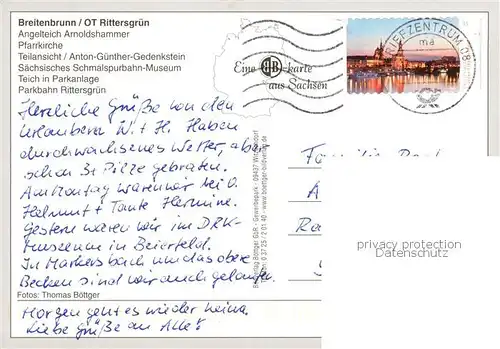 Breitenbrunn / OT Rittersgrün
Angelteich Arnoldshammer
Pfarrkirche
Teilansicht / Anton-Günther-Gedenkstein
Sächsisches Schmalspurbahn-Museum
Teich in Parkanlage
Parkbahn Rittersgrün
Eine HB-karte
aus Sachsen
BRIEFZENTRUM 08
ma
Herzliche Grüße von den
Urlaubern W. + H. Haben
durchwachsenes Wetter, aber
schon 3x Pilze gebraten.
Am Montag waren wir bei O.
Helmut + Tante Hermine.
Gestern waren wir im DRK-
Museum in Beierfeld.
In Markersbach um das obere
Becken sind wir auch gelaufen.
Fotos: Thomas Böttger
Morgen geht es wieder heim.
Liebe Grüße an Alle!
Bildverlag Böttger GbR · Gewerbepark · 09437 Witzschdorf
0 37 25 / 2 01 40 · www.boettger-bildverlag.de
Familie
privacy protection
Datenschutz